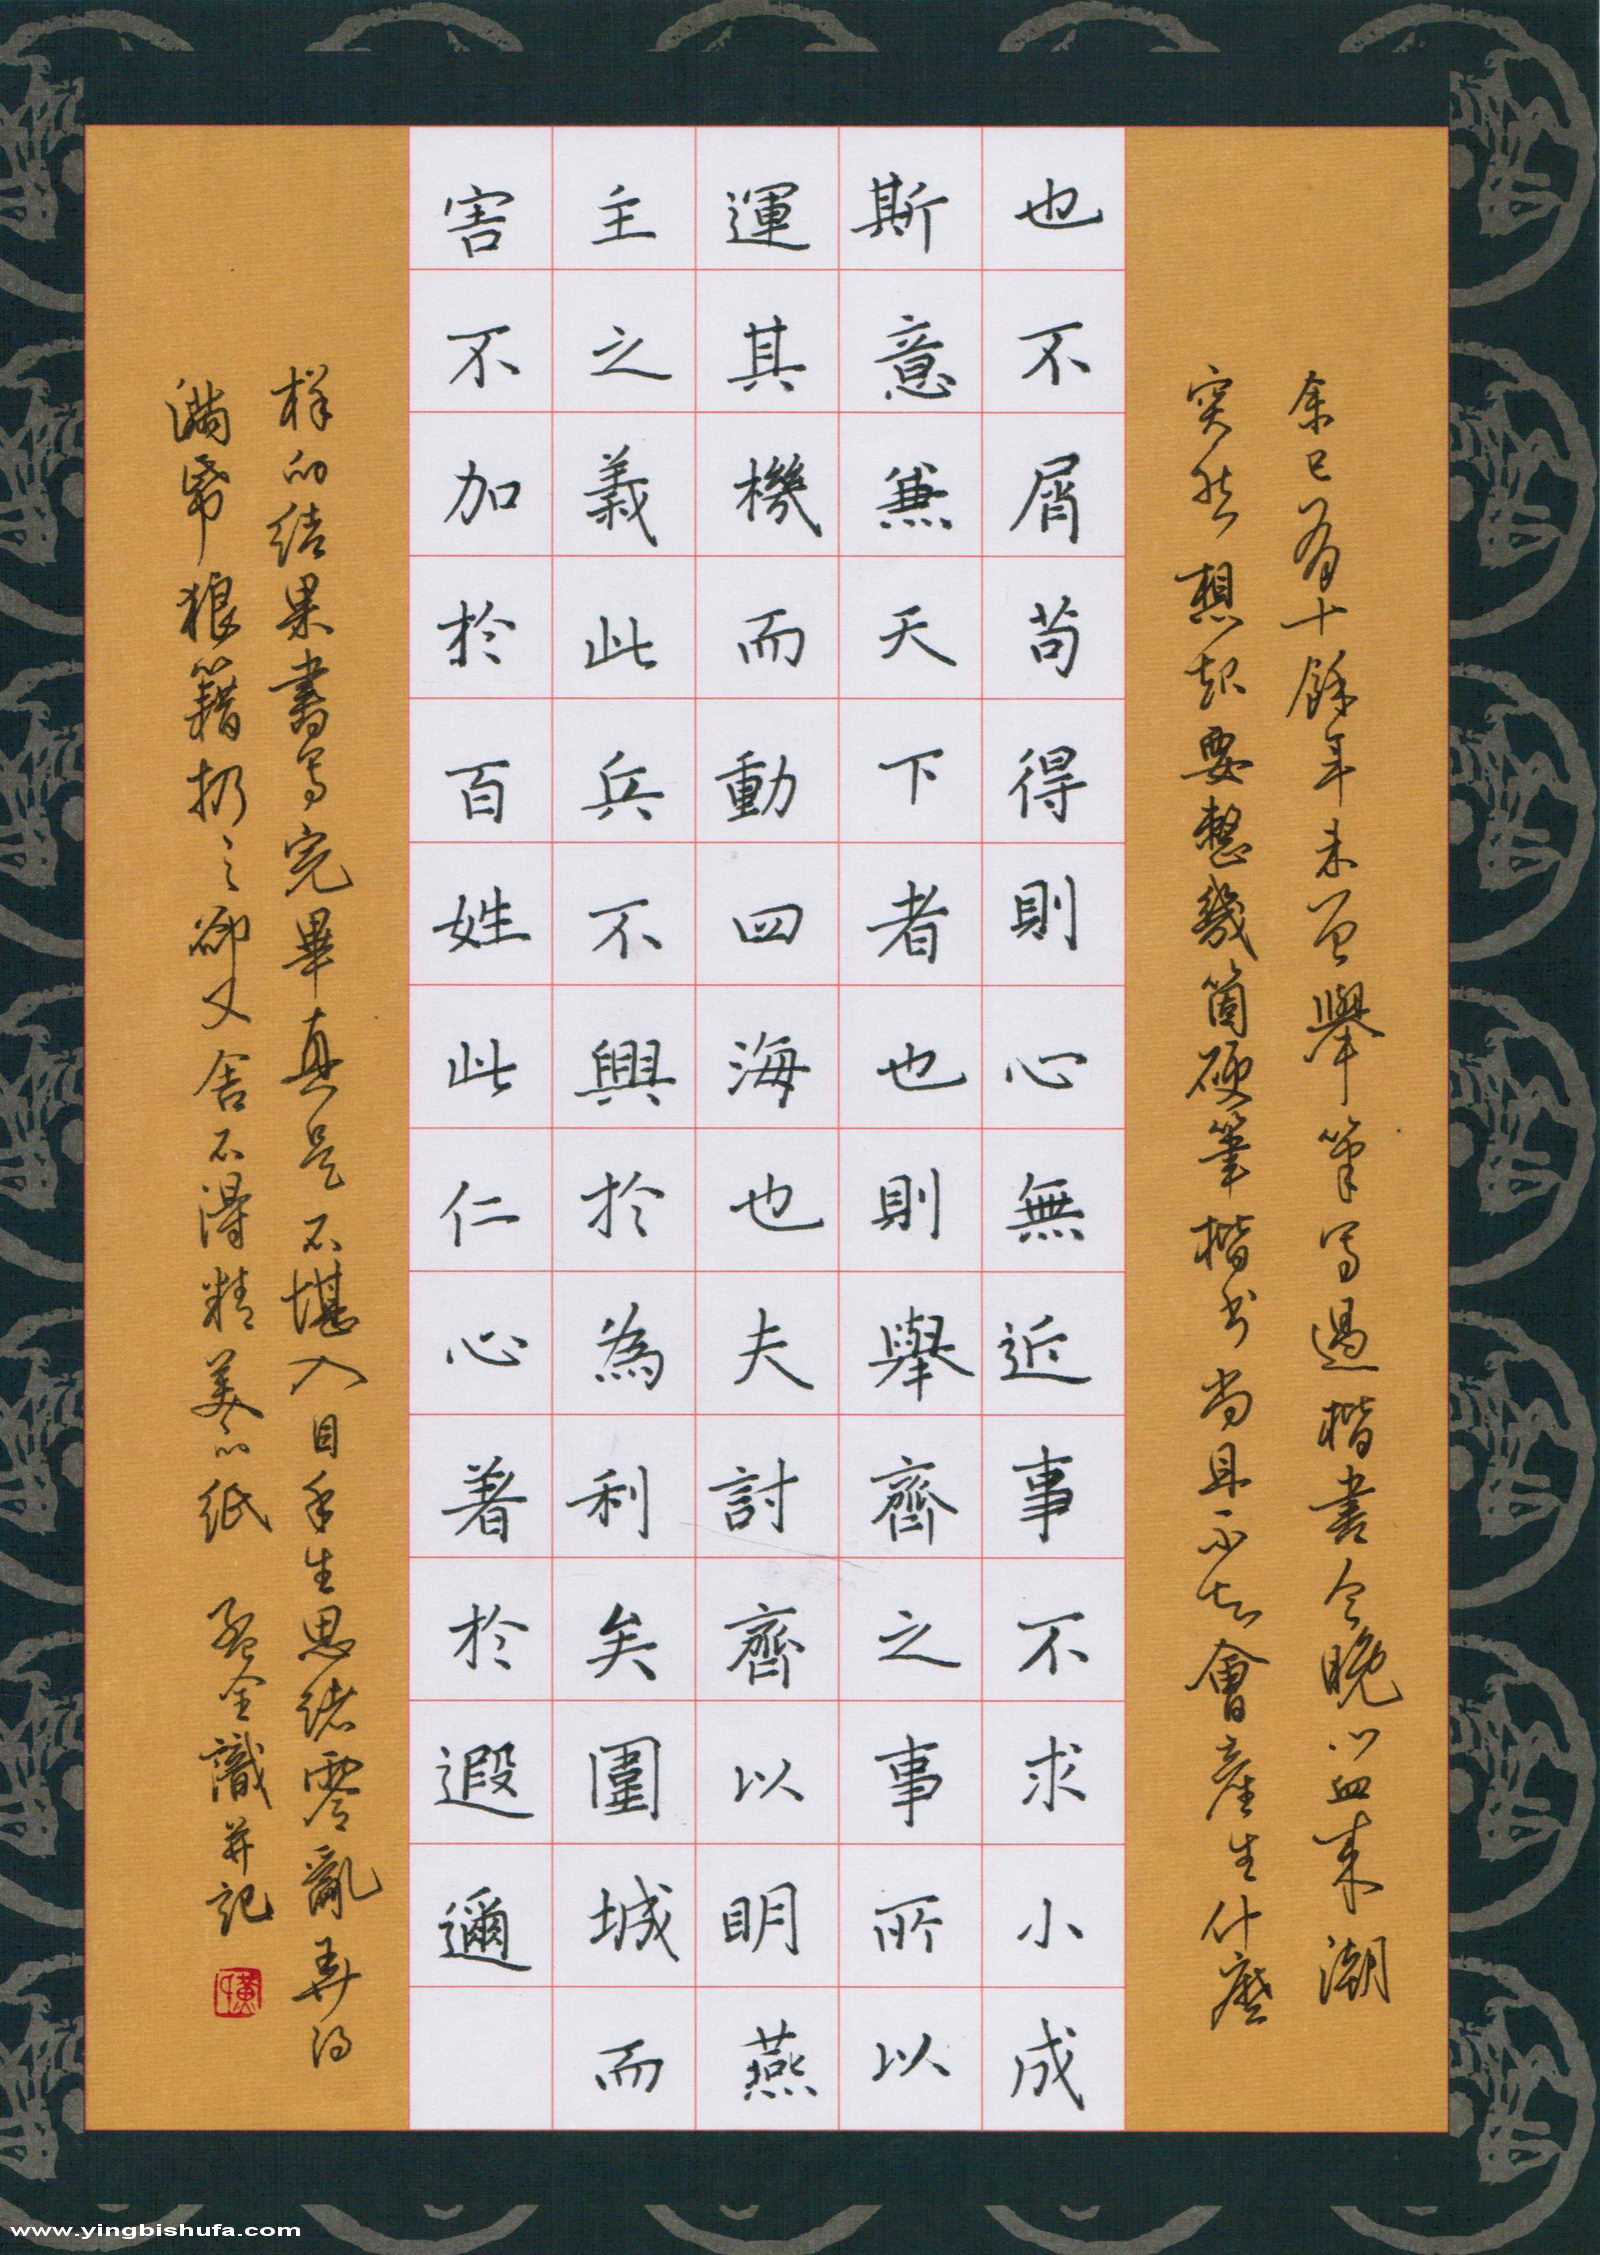 余已有十餘年未曾舉筆寫過楷書今晚心血来潮
突然想起要整幾箇硬筆楷书尚且不知會產生什麽
也不屑苟得則心無近事不求小成
斯意兼天下者也則舉齊之事所以
運其機而動四海也夫討齊以明燕
主之義此兵不興於為利矣圍城而
害不加於百姓此仁心著於遐邇
样的结果書写完畢真是不堪入目手生思绪零亂弄得
满帋狼籍扔之卻又舍不得精美的纸 金識并記
www.yingbishufa.com